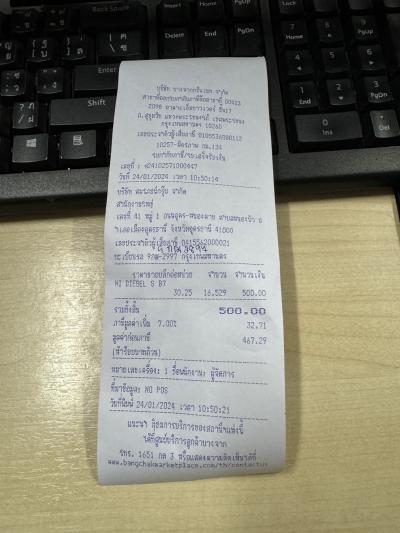 บริษัท บางจากกรีนเนท จำกัด
สาขาที่ออกใบกำกับภาษีคือสาขาที่ 00423
2098 อาคารเอ็มทาวเวอร์ ชั้น7
ถ.สุขุมวิท แขวงพระโขนงใต้ เขตพระโขนง
กรุงเทพมหานคร 10260
เลขประจำตัวผู้เสียภาษี 0105536090112
10257-มิตรภาพ กม.134
ใบกำกับภาษี/ใบเสร็จรับเงิน
เลขที่ : 42410257100447
วันที่ 24/01/2024 เวลา 10:50:14
บริษัท จำกัด
สำนักงานใหญ่
เลขที่ 41 หมู่ 1 ถนนอุดร-หนองคาย
อำเภอเมืองอุดรธานี จังหวัดอุดรธานี 41000
เลขประจำตัวผู้เสียภาษี 0415562000021
ทะเบียนรถ กรุงเทพมหานคร
ราคาขายปลีกต่อหน่วย จำนวน จำนวนเงิน
HI DIESEL S B7
30.25 16.529 500.00
รวมทั้งสิ้น 500.00
ภาษีมูลค่าเพิ่ม 7.00% 32.71
มูลค่าก่อนภาษี 467.29
(ห้าร้อยบาทถ้วน)
หมายเลขเครื่อง: 1 ชื่อพนักงาน: ผู้จัดการ
ที่มาข้อมูล: NO POS
วันที่พิมพ์ 24/01/2024 เวลา 10:50:21
แนะนำ ติชมการบริการของสถานีฯแห่งนี้
ได้ที่ศูนย์บริการลูกค้าบางจาก
โทร. 1651 กด 3 หรือแสดงความคิดเห็นได้ที่
www.bangchakmarketplace.com/th/contactus
Back Space
Insert
Home
PgUp
Delete
End
PgDn
Enter
Shift
Ctrl